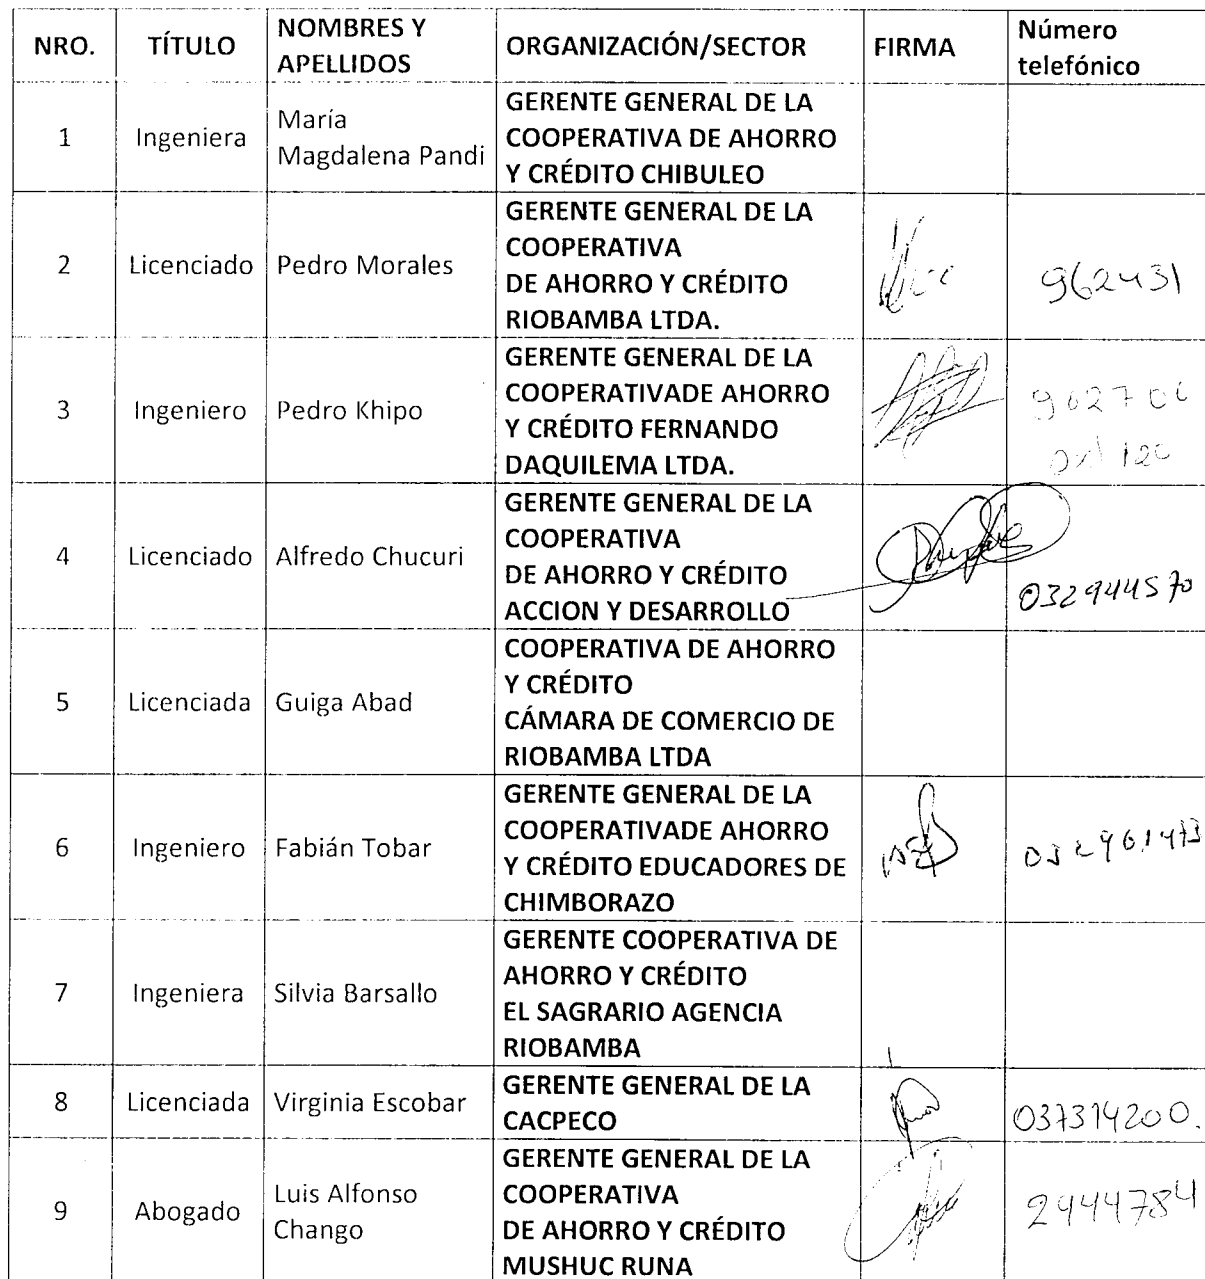 NRO. TÍTULO NOMBRES Y APELLIDOS ORGANIZACIÓN/SECTOR FIRMA Número telefónico
1 Ingeniera María Magdalena Pandi GERENTE GENERAL DE LA COOPERATIVA DE AHORRO Y CRÉDITO CHIBULEO
2 Licenciado Pedro Morales GERENTE GENERAL DE LA COOPERATIVA DE AHORRO Y CRÉDITO RIOBAMBA LTDA. 962431
3 Ingeniero Pedro Khipo GERENTE GENERAL DE LA COOPERATIVADE AHORRO Y CRÉDITO FERNANDO DAQUILEMA LTDA.
4 Licenciado Alfredo Chucuri GERENTE GENERAL DE LA COOPERATIVA DE AHORRO Y CRÉDITO ACCION Y DESARROLLO 032944570
5 Licenciada Guiga Abad COOPERATIVA DE AHORRO Y CRÉDITO CÁMARA DE COMERCIO DE RIOBAMBA LTDA
6 Ingeniero Fabián Tobar GERENTE GENERAL DE LA COOPERATIVADE AHORRO Y CRÉDITO EDUCADORES DE CHIMBORAZO 032961473
7 Ingeniera Silvia Barsallo GERENTE COOPERATIVA DE AHORRO Y CRÉDITO EL SAGRARIO AGENCIA RIOBAMBA
8 Licenciada Virginia Escobar GERENTE GENERAL DE LA CACPECO 037314200.
9 Abogado Luis Alfonso Chango GERENTE GENERAL DE LA COOPERATIVA DE AHORRO Y CRÉDITO MUSHUC RUNA 2944784